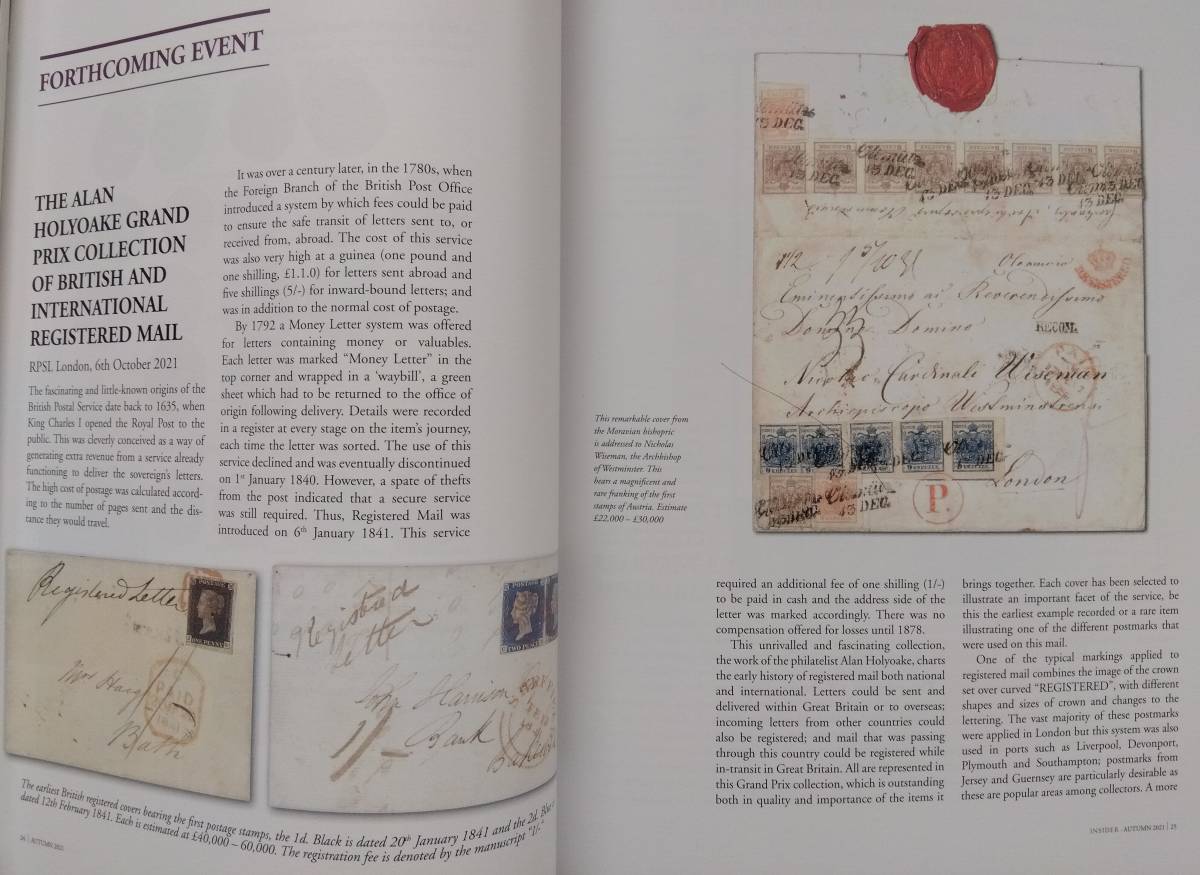 FORTHCOMING EVENT
THE ALAN
HOLYOAKE GRAND
PRIX COLLECTION
OF BRITISH AND
INTERNATIONAL
REGISTERED MAIL
RPSL London, 6th October 2021
The fascinating and little-known origins of the
British Postal Service date back to 1635, when
King Charles I opened the Royal Post to the
public. This was cleverly conceived as a way of
generating extra revenue from a service already
functioning to deliver the sovereign's letters.
The high cost of postage was calculated accord-
ing to the number of pages sent and the dis-
tance they would travel.
It was over a century later, in the 1780s, when
the Foreign Branch of the British Post Office
introduced a system by which fees could be paid
to ensure the safe transit of letters sent to, or
received from, abroad. The cost of this service
was also very high at a guinea (one pound and
one shilling, £1.1.0) for letters sent abroad and
five shillings (5/-) for inward-bound letters; and
was in addition to the normal cost of postage.
By 1792 a Money Letter system was offered
for letters containing money or valuables.
Each letter was marked “Money Letter” in the
top corner and wrapped in a ‘waybill’, a green
sheet which had to be returned to the office of
origin following delivery. Details were recorded
in a register at every stage on the item's journey,
each time the letter was sorted. The use of this
service declined and was eventually discontinued
on 1st January 1840. However, a spate of thefts
from the post indicated that a secure service
was still required. Thus, Registered Mail was
introduced on 6th January 1841. This service
Registered Letter
POSTAGE
ONE PENNY
PAID
1841
Bath
Registered
Letter
POSTAGE
TWO PENCE
John Harrison
Bank
1/-
The earliest British registered covers bearing the first postage stamps, the 1d. Black is dated 20th January 1841 and the 2d. Blue
dated 12th February 1841. Each is estimated at £40,000 – 60,000. The registration fee is denoted by the manuscript “1/-
24 | AUTUMN 2021
13 DEC.
13 DEC.
13 DEC.
13 DEC.
13 DEC.
13 DEC.
Eminentissimo ac Reverendissimo
REGISTERED
Domino Domino
RECOM.
Nicolao Cardinali Wiseman
Archiepiscopo Westminstrensi
13 DEC.
London
13 DEC.
P.
This remarkable cover from
the Moravian bishopric
is addressed to Nicholas
Wiseman, the Archbishop
of Westminster. This
bears a magnificent and
rare franking of the first
stamps of Austria. Estimate
£22,000 – £30,000
required an additional fee of one shilling (1/-)
to be paid in cash and the address side of the
letter was marked accordingly. There was no
compensation offered for losses until 1878.
This unrivalled and fascinating collection,
the work of the philatelist Alan Holyoake, charts
the early history of registered mail both national
and international. Letters could be sent and
delivered within Great Britain or to overseas;
incoming letters from other countries could
also be registered; and mail that was passing
through this country could be registered while
in-transit in Great Britain. All are represented in
this Grand Prix collection, which is outstanding
both in quality and importance of the items it
brings together. Each cover has been selected to
illustrate an important facet of the service, be
this the earliest example recorded or a rare item
illustrating one of the different postmarks that
were used on this mail.
One of the typical markings applied to
registered mail combines the image of the crown
set over curved “REGISTERED”, with different
shapes and sizes of crown and changes to the
lettering. The vast majority of these postmarks
were applied in London but this system was also
used in ports such as Liverpool, Devonport,
Plymouth and Southampton; postmarks from
Jersey and Guernsey are particularly desirable as
these are popular areas among collectors. A more
INSIDER AUTUMN 2021 | 25